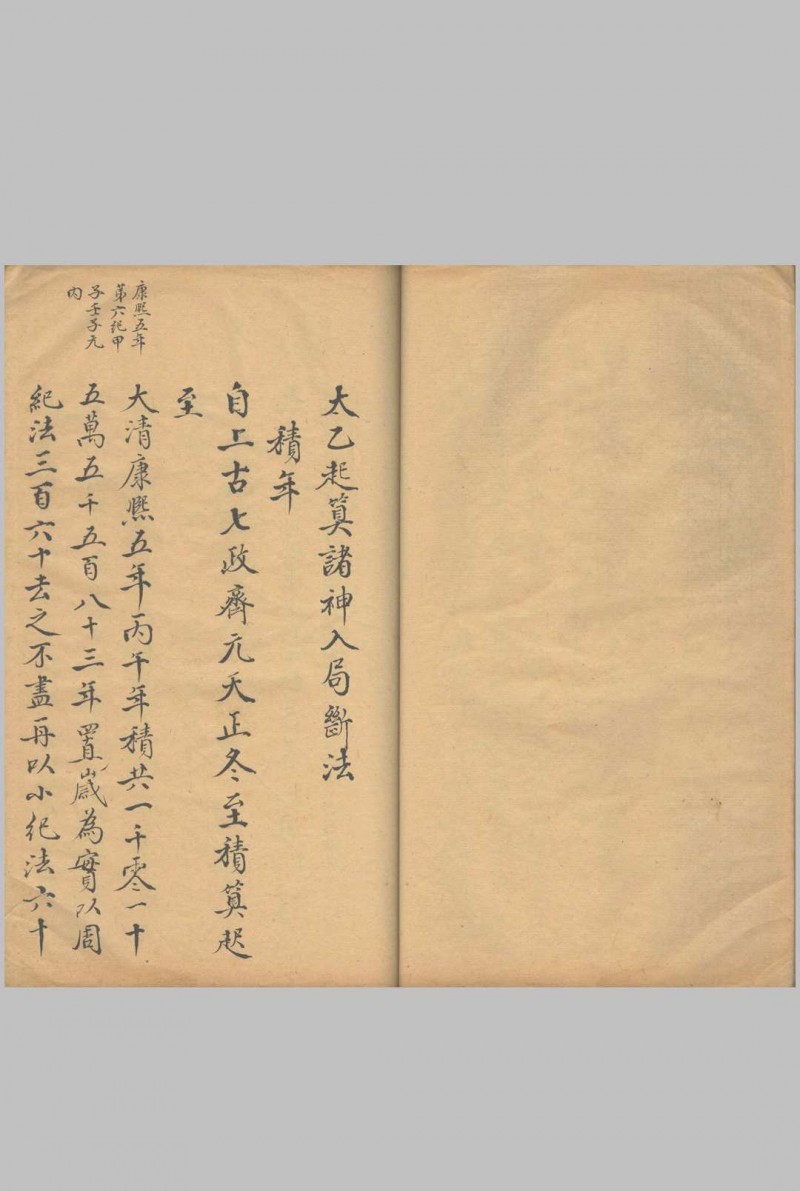 太乙起算諸神入局斷法
積年
自上古七政齊元天正冬至積算起
至
大清康熙五年丙午年積共一千零一十
五萬五千五百八十三年置歲為實以周
紀法三百六十去之不盡再以小紀法六十
康熙五年
第六紀甲
子壬子元
內